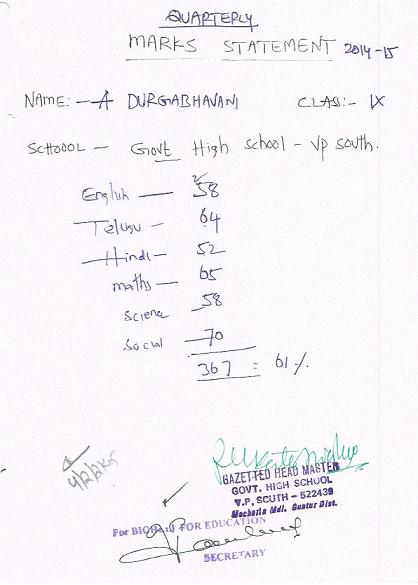 QUARTERLY
MARKS STATEMENT 2014-15
NAME:- A DURGABHAVANI CLASS:- IX
SCHOOOL - Govt High school - VP south.
English - 58
Telugu - 64
Hindi - 52
maths - 65
science - 58
social - 70
367 = 61 %
GAZETTED HEAD MASTER
GOVT. HIGH SCHOOL
V.P. SOUTH - 522439
Macherla Mdl. Guntur Dist.
For FOR EDUCATION
SECRETARY